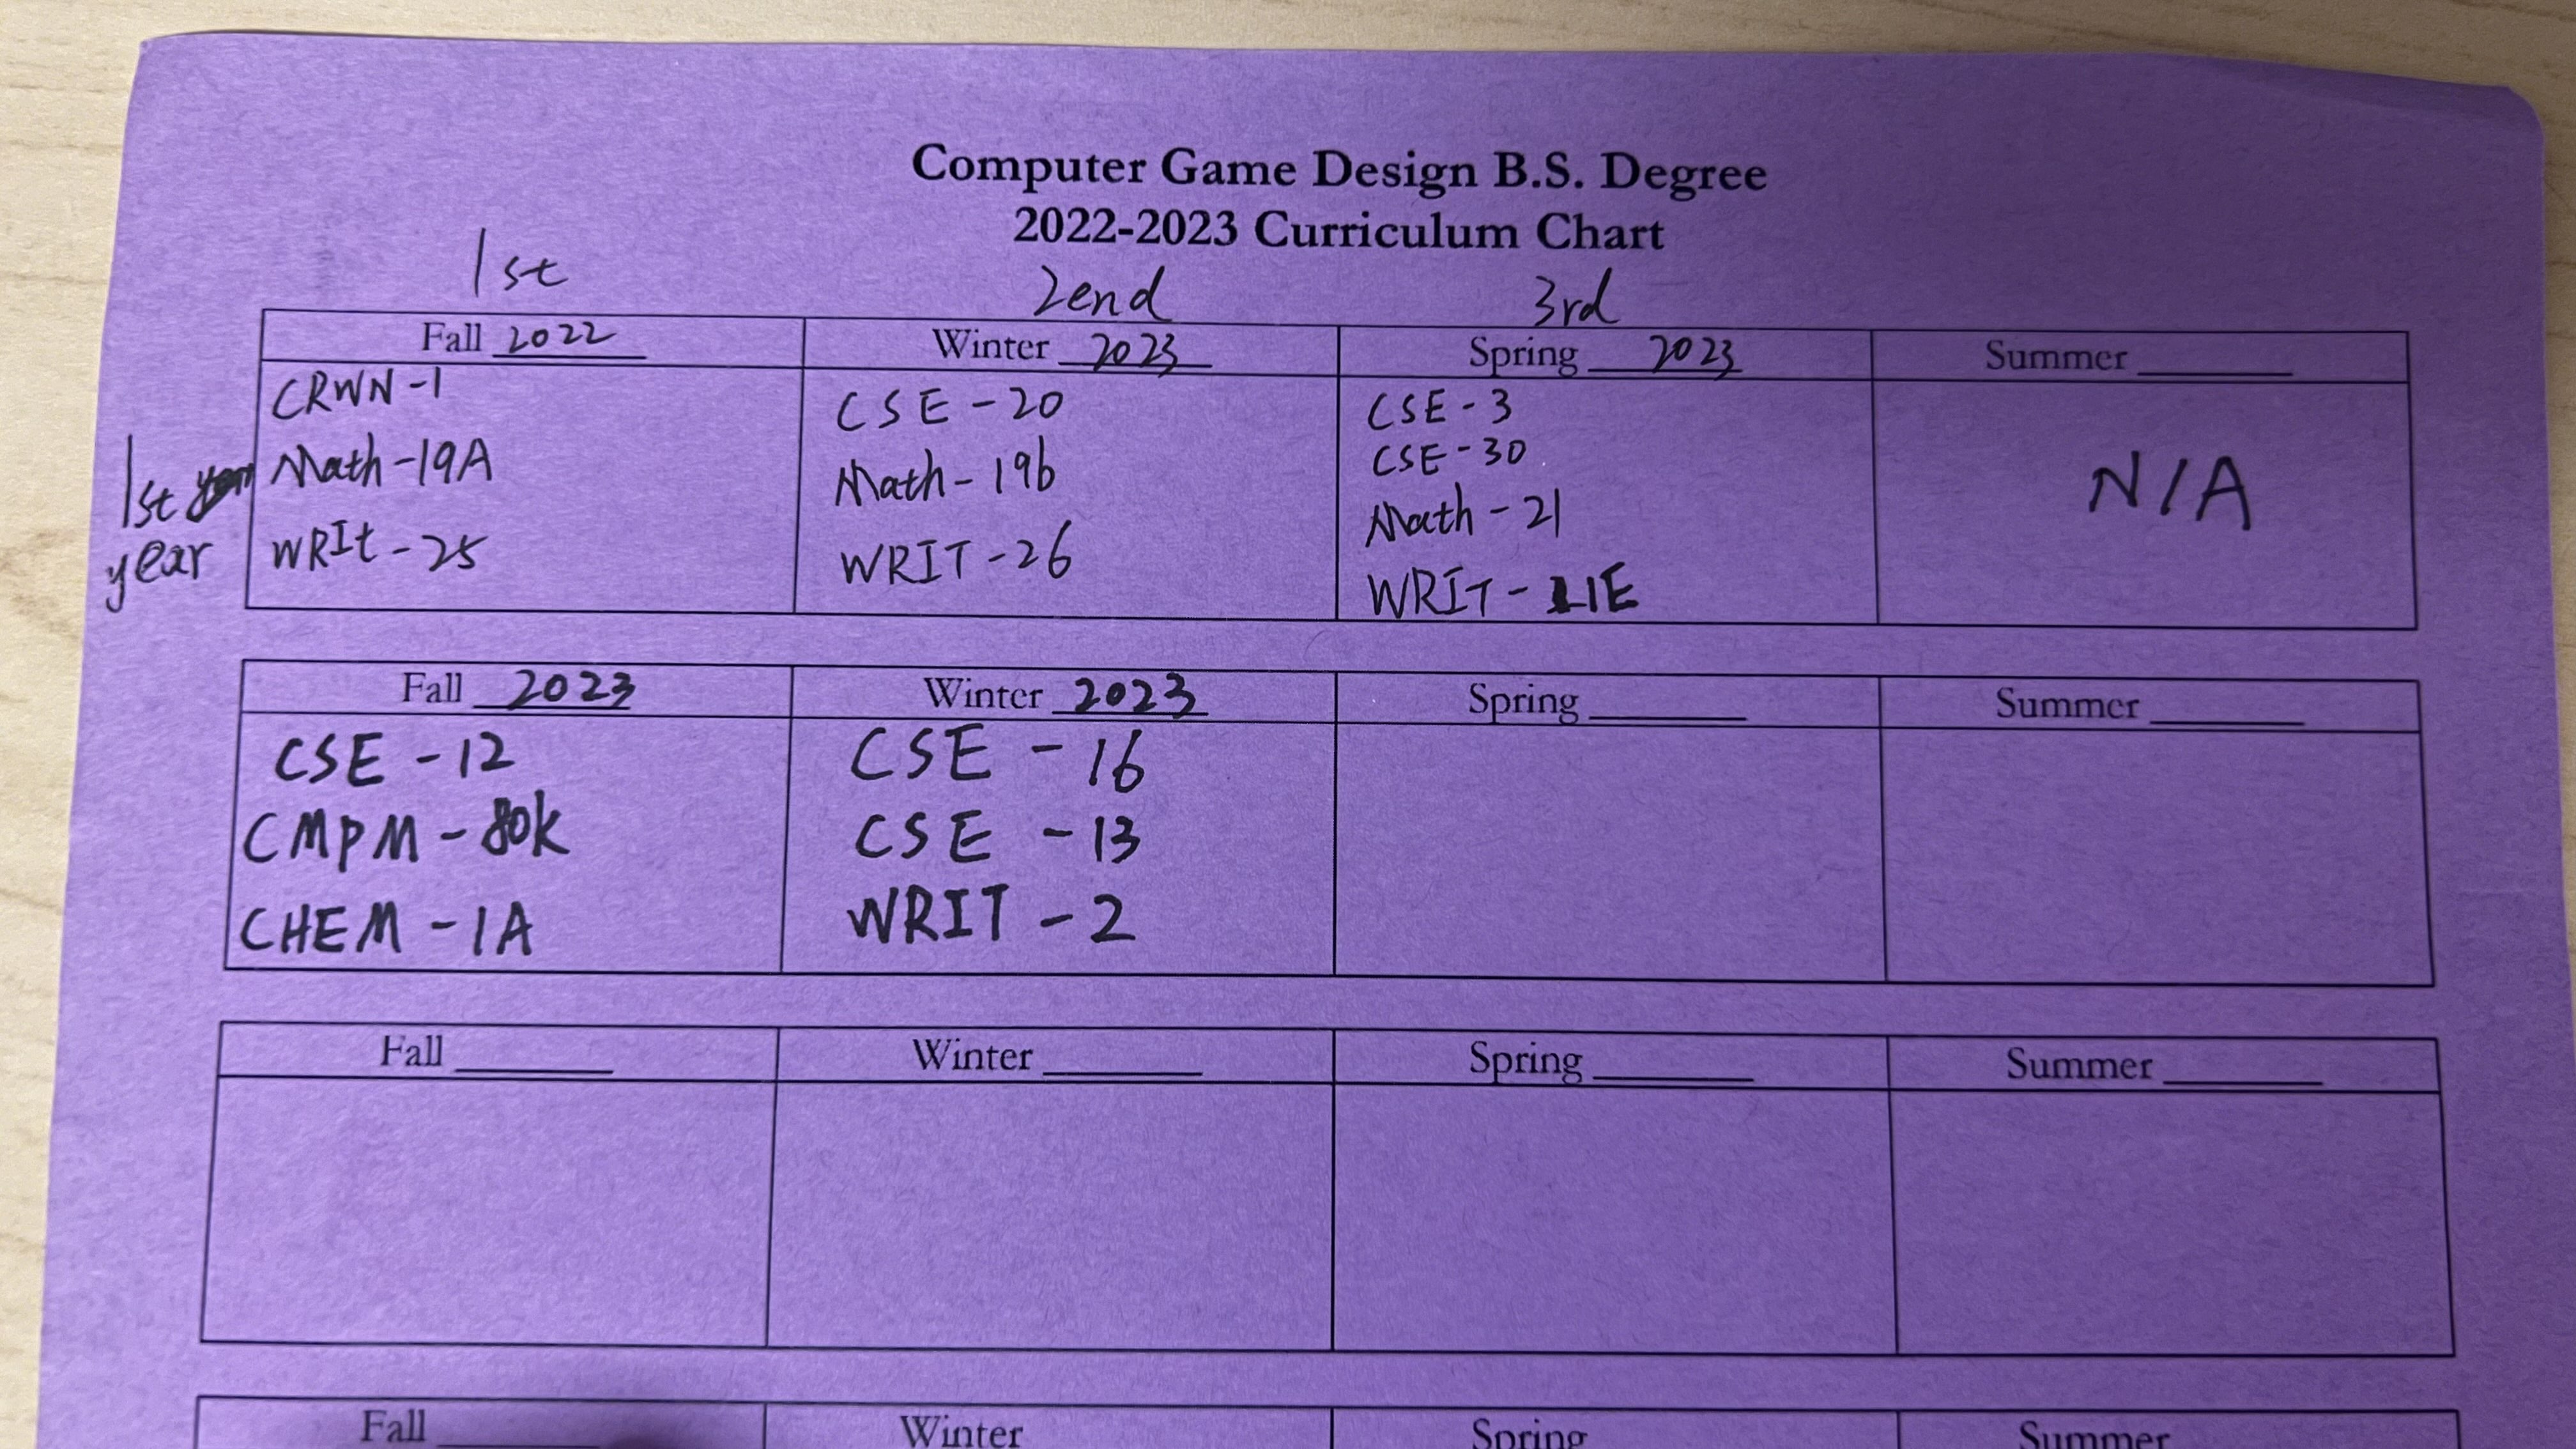 Computer Game Design B.S. Degree
2022-2023 Curriculum Chart
1st 2end 3rd
Fall 2022 Winter 2023 Spring 2023 Summer
1st
year
CRWN-1
Math-19A
WRIt-25
CSE-20
Math-19b
WRIT-26
CSE-3
CSE-30
Math-21
WRIT-1E
N/A
Fall 2023 Winter 2023 Spring Summer
CSE-12
CMPM-80k
CHEM-1A
CSE-16
CSE-13
WRIT-2
Fall Winter Spring Summer
Fall Winter Spring Summer